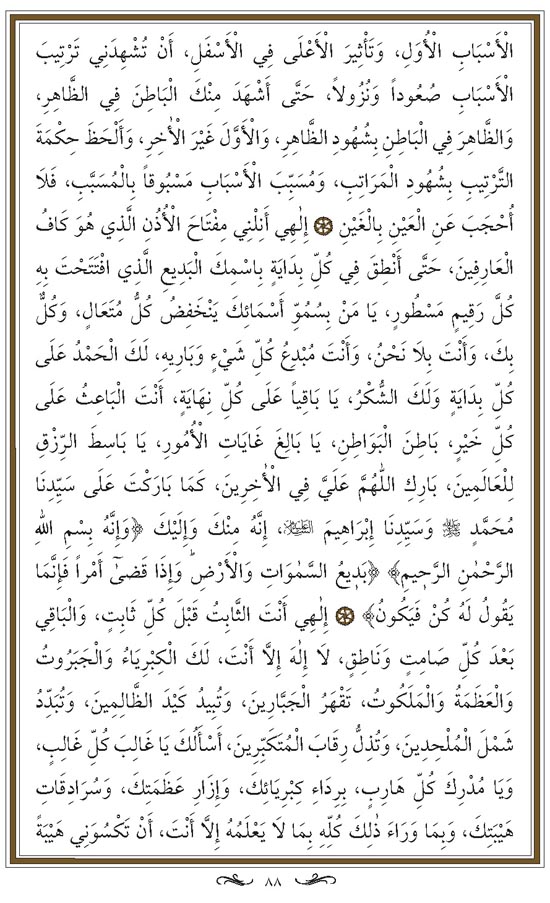 الْأَسْبَابِ الْأُوَلِ، وَتَأْثِيرَ الْأَعْلَى فِي الْأَسْفَلِ، أَنْ تُشْهِدَنِي تَرْتِيبَ
الْأَسْبَابِ صُعُوداً وَنُزُولاً، حَتَّى أَشْهَدَ مِنْكَ الْبَاطِنَ فِي الظَّاهِرِ،
وَالظَّاهِرَ فِي الْبَاطِنِ بِشُهُودِ الظَّاهِرِ، وَالْأَوَّلَ غَيْرَ الْأٰخِرِ، وَأَلْحَظَ حِكْمَةَ
التَّرْتِيبِ بِشُهُودِ الْمَرَاتِبِ، وَمُسَبِّبَ الْأَسْبَابِ مَسْبُوقاً بِالْمُسَبَّبِ، فَلَا
أُحْجَبَ عَنِ الْعَيْنِ بِالْغَيْنِ ۞ إِلٰهِي أَنِلْنِي مِفْتَاحَ الْأُذُنِ الَّذِي هُوَ كَافُ
الْعَارِفِينَ، حَتَّى أَنْطِقَ فِي كُلِّ بِدَايَةٍ بِاسْمِكَ الْبَدِيعِ الَّذِي افْتَتَحْتَ بِهِ
كُلَّ رَقِيمٍ مَسْطُورٍ، يَا مَنْ بِسُمُوِّ أَسْمَائِكَ يَنْخَفِضُ كُلُّ مُتَعَالٍ، وَكُلٌّ
بِكَ، وَأَنْتَ بِلَا نَحْنُ، وَأَنْتَ مُبْدِعُ كُلِّ شَيْءٍ وَبَارِيهِ، لَكَ الْحَمْدُ عَلَى
كُلِّ بِدَايَةٍ وَلَكَ الشُّكْرُ، يَا بَاقِياً عَلَى كُلِّ نِهَايَةٍ، أَنْتَ الْبَاعِثُ عَلَى
كُلِّ خَيْرٍ، بَاطِنَ الْبَوَاطِنِ، يَا بَالِغَ غَايَاتِ الْأُمُورِ، يَا بَاسِطَ الرِّزْقِ
لِلْعَالَمِينَ، بَارِكِ اللّٰهُمَّ عَلَيَّ فِي الْأٰخِرِينَ، كَمَا بَارَكْتَ عَلَى سَيِّدِنَا
مُحَمَّدٍ ﷺ وَسَيِّدِنَا إِبْرَاهِيمَ عَلَيْهِ السَّلَام، إِنَّهُ مِنْكَ وَإِلَيْكَ ﴿وَإِنَّهُ بِسْمِ اللهِ
الرَّحْمٰنِ الرَّحِيمِ﴾ ﴿بَدِيعُ السَّمٰوَاتِ وَالْأَرْضِۜ وَإِذَا قَضىٰٓ أَمْراً فَإِنَّمَا
يَقُولُ لَهُ كُنْ فَيَكُونُ﴾ ۞ إِلٰهِي أَنْتَ الثَّابِتُ قَبْلَ كُلِّ ثَابِتٍ، وَالْبَاقِي
بَعْدَ كُلِّ صَامِتٍ وَنَاطِقٍ، لَا إِلٰهَ إِلَّا أَنْتَ، لَكَ الْكِبْرِيَاءُ وَالْجَبَرُوتُ
وَالْعَظَمَةُ وَالْمَلَكُوتُ، تَقْهَرُ الْجَبَّارِينَ، وَتُبِيدُ كَيْدَ الظَّالِمِينَ، وَتُبَدِّدُ
شَمْلَ الْمُلْحِدِينَ، وَتُذِلُّ رِقَابَ الْمُتَكَبِّرِينَ، أَسْأَلُكَ يَا غَالِبَ كُلِّ غَالِبٍ،
وَيَا مُدْرِكَ كُلِّ هَارِبٍ، بِرِدَاءِ كِبْرِيَائِكَ، وَإِزَارِ عَظَمَتِكَ، وَسُرَادِقَاتِ
هَيْبَتِكَ، وَبِمَا وَرَاءَ ذٰلِكَ كُلِّهِ بِمَا لَا يَعْلَمُهُ إِلَّا أَنْتَ، أَنْ تَكْسُوَنِي هَيْبَةً
٨٨